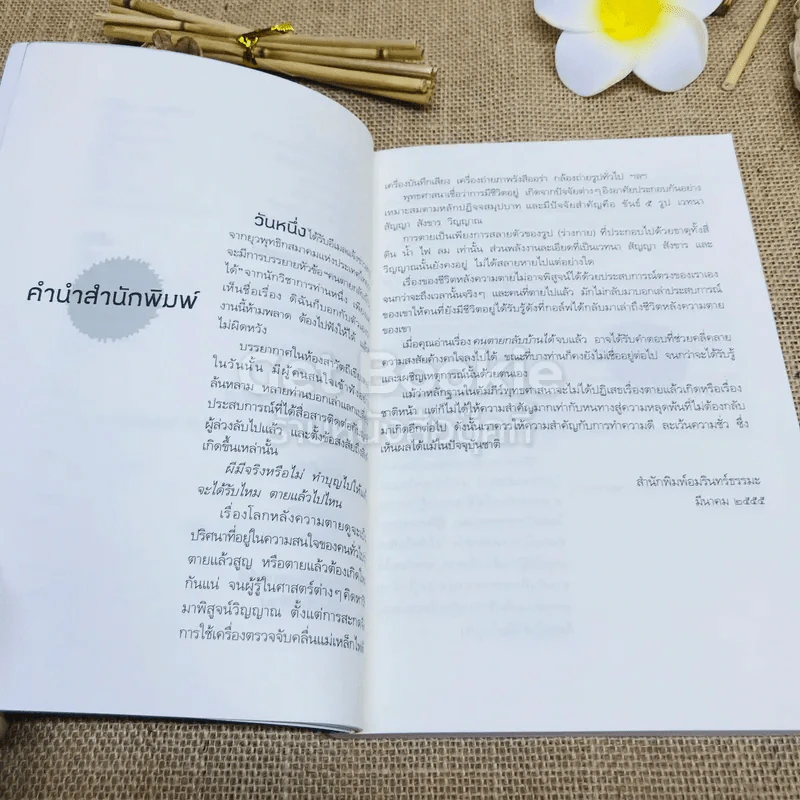 คำนำสำนักพิมพ์
วันหนึ่ง ได้รับอีเมลแจ้งข่าว
จากยุวพุทธิกสมาคมแห่งประเทศ
จะมีการบรรยายหัวข้อ "คนตายกลับ
ได้" จากนักวิชาการท่านหนึ่ง เพียง
เห็นชื่อเรื่อง ดิฉันก็บอกกับตัวเอง
งานนี้ห้ามพลาด ต้องไปฟังให้ได้ แล้ว
ไม่ผิดหวัง
บรรยากาศในห้อง
ในวันนั้น มีผู้คนสนใจเข้าฟัง
ล้นหลาม หลายท่านบอกเล่าแลก
ประสบการณ์ที่ได้สื่อสารติดต่อ
ผู้ล่วงลับไปแล้ว และตั้งข้อสงสัย
เกิดขึ้นเหล่านั้น
ผีมีจริงหรือไม่ ทำบุญไปให้
จะได้รับไหม ตายแล้วไปไหน
เรื่องโลกหลังความตายดูจะ
ปริศนาที่อยู่ในความสนใจของคนทั่วไป
ตายแล้วสูญ หรือตายแล้วต้องเกิด
กันแน่ จนผู้รู้ในศาสตร์ต่างๆ คิด
มาพิสูจน์วิญญาณ ตั้งแต่การสะกด
การใช้เครื่องตรวจจับคลื่นแม่เหล็ก
เครื่องบันทึกเสียง เครื่องถ่ายภาพรังสีออร่า กล้องถ่ายรูปทั่วไป ฯลฯ
พุทธศาสนาเชื่อว่าการมีชีวิตอยู่ เกิดจากปัจจัยต่างๆ อิงอาศัยประกอบกันอย่าง
เหมาะสมตามหลักปฏิจจสมุปบาท และมีปัจจัยสำคัญคือ ขันธ์ ๕ รูป เวทนา
สัญญา สังขาร วิญญาณ
การตายเป็นเพียงการสลายตัวของรูป (ร่างกาย) ที่ประกอบไปด้วยธาตุทั้งสี่
ดิน น้ำ ไฟ ลม เท่านั้น ส่วนพลังงานละเอียดที่เป็นเวทนา สัญญา สังขาร และ
วิญญาณนั้นยังคงอยู่ ไม่ได้สลายหายไปแต่อย่างใด
เรื่องของชีวิตหลังความตายไม่อาจพิสูจน์ได้ด้วยประสบการณ์ตรงของเราเอง
จนกว่าจะถึงเวลานั้นจริงๆ และคนที่ตายไปแล้ว มักไม่กลับมาบอกเล่าประสบการณ์
ของเขาให้คนที่ยังมีชีวิตอยู่ได้รับรู้ดังที่กอล์ฟได้กลับมาเล่าถึงชีวิตหลังความตาย
ของเขา
เมื่อคุณอ่านเรื่อง คนตายกลับบ้านได้ จบแล้ว อาจได้รับคำตอบที่ช่วยคลี่คลาย
ความสงสัยค้างคาใจลงไปได้ ขณะที่บางท่านก็คงยังไม่เชื่ออยู่ต่อไป จนกว่าจะได้รับรู้
และเผชิญเหตุการณ์นั้นด้วยตนเอง
แม้ว่าหลักฐานในคัมภีร์พุทธศาสนาจะไม่ได้ปฏิเสธเรื่องตายแล้วเกิดหรือเรื่อง
ชาติหน้า แต่ก็ไม่ได้ให้ความสำคัญมากเท่ากับหนทางสู่ความหลุดพ้นที่ไม่ต้องกลับ
มาเกิดอีกต่อไป ดังนั้นเราควรให้ความสำคัญกับการทำความดี ละเว้นความชั่ว ซึ่ง
เห็นผลได้แม้ในปัจจุบันชาติ
สำนักพิมพ์อมรินทร์ธรรมะ
มีนาคม ๒๕๕๕
Get Bookie